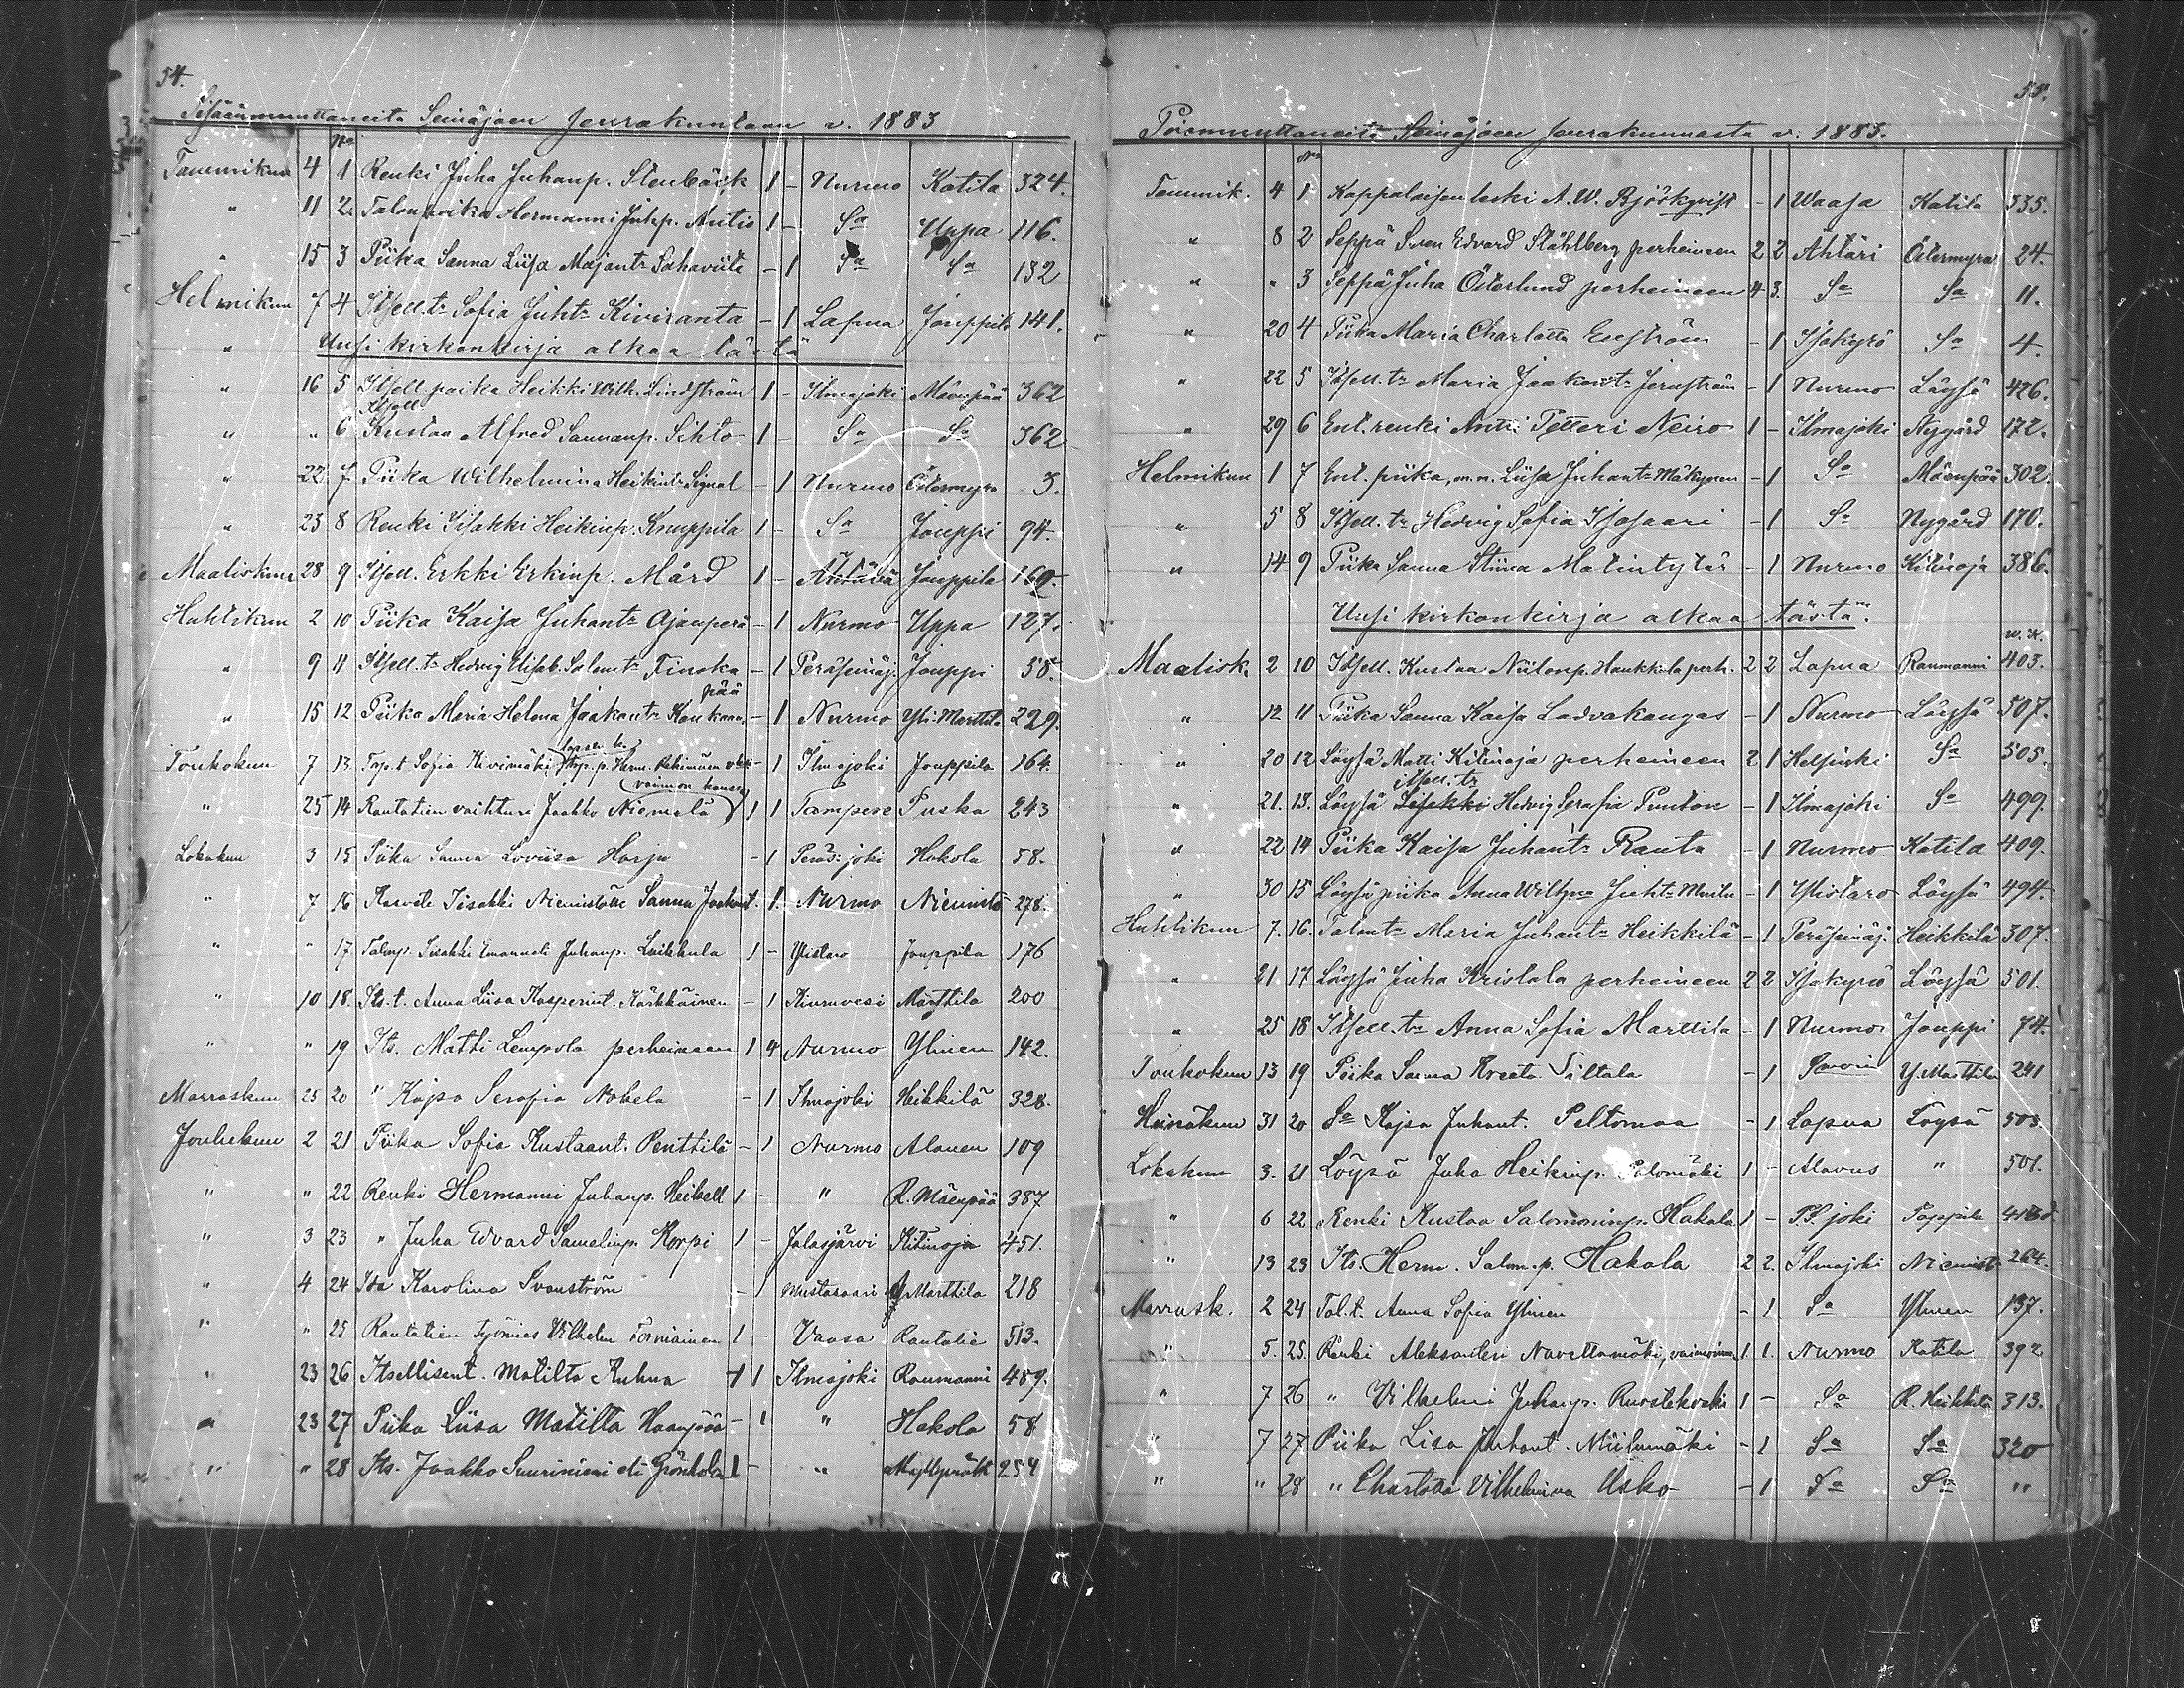 54.
Sisäänmuuttaneita Seinäjoen seurakuntaan v. 1883
No
Tammikuu 4 1 Renki Juha Juhanp. Stenbäck 1 - Nurmo Katila 324.
" 11 2 Talonpoika Hermanni Juhp. Antio 1 - Sa Uppa 116.
" 15 3 Piika Sanna Liisa Majantr - 1 Sa Sa 132
Helmikuu 7 4 Itsell. tr Sofia Juhtr Kiviranta - 1 Lapua Jouppila 141.
" Uusi kirkonkirja alkaa tästä
" 16 5 Itsell. poika Heikki Wilh. Lindström 1 - Ilmajoki Mäenpää 362
Itsell.
" " 6 Kustaa Alfred Sannanp. Sihto 1 - Sa Sa 362
" 22 7 Piika Wilhelmina Heikintr Signal - 1 Nurmo Östermyra 3.
" 23 8 Renki Iisakki Heikinp. Knuppila 1 - Sa Jouppi 94.
Maaliskuu 28 9 Itsell. Erkki Erkinp. Mård 1 - Jouppila 169.
Huhtikuu 2 10 Piika Kaisa Juhantr Ajanperä - 1 Nurmo Uppa 127.
" 9 11 Itsell. tr Hedvig Elisab. Salomtr Finska - 1 Peräseinäj. Jouppi 58.
pää
" 15 12 Piika Maria Helena Jaakontr Koukaan - 1 Nurmo Yli-Marttila 229.
Toukokuu 7 13 Sofia Kivimäki - 1 Ilmajoki Jouppila 164.
vaimon kanssa
" 25 14 Rautatien vaihturi Jaakko Niemelä 1 1 Tampere Puska 243
Lokakuu 3 15 Piika Sanna Loviisa Harju - 1 Peräs: joki Hakola 58.
" 7 16 Iisakki Niemistölle Sanna Jaakont. - 1. Nurmo Niemistö 278.
" " 17 Talonp. Iisakki Emanueli Juhanp. Luikkula 1 - Ylistaro Jouppila 176
" 10 18. Its. t. Anna Liisa Kasperint. Kärkkäinen - 1 Kiuruvesi Marttila 200
" " 19 Its. Matti Lempola perheineen 1 4 Nurmo Ylinen 142.
Marraskuu 25 20 " Kajsa Serafia Nokela - 1 Ilmajoki Heikkilä 328.
Joulukuu 2 21 Piika Sofia Kustaant. Penttilä - 1 Nurmo Alanen 109
" " 22 Renki Hermanni Juhanp. Heikell 1 - " R. Mäenpää 387
" 3 23 " Juha Edvard Samelinp. Korpi 1 - Jalasjärvi Kitinoja 451.
" 4 24 Ida Karolina Svanström - 1 Mustasaari Y Marttila 218
" " 25 Rautatien työmies Vilhelm Torniainen 1 - Vaasa Rautatie 513.
" 23 26 Itsellisent. Matilta Ruhna 1 1 Ilmajoki Raumanni 489.
" 23 27 Piika Liisa Matilta Haanpää - 1 " Hakola 58
" " 28 Its. Jaakko Suuriniemi eli Grönholm 1 - " 254
55.
Poismuuttaneita Seinäjoen seurakunnasta v. 1883.
No
Tammik. 4 1 Kappalaisen leski A. W. Björkqvist - 1 Waasa Katila 335.
" 8 2 Seppä Sven Edvard Ståhlberg perheineen 2 2 Ähtäri Östermyra 24.
" " 3 Seppä Juha Österlund perheineen 4 3. Sa Sa 11.
" 20 4 Piika Maria Charlotta Enström - 1 Isokyrö Sa 4.
" 22 5 Itsell. tr Maria Jaakontr Jernström - 1 Nurmo Löysä 426.
" 29 6 Ent. renki Antti Petteri Neiro 1 - Ilmajoki Nygård 172.
Helmikuu 1 7 Ent. piika, m. n. Liisa Juhantr Mäkynen - 1 Sa Mäenpää 302.
" 5 8 Itsell. tr Hedvig Sofia Isosaari - 1 Sa Nygård 170.
" 14 9 Piika Sanna Stiina Matintytär - 1 Nurmo Kitinoja 386.
Uusi kirkonkirja alkaa tästä.
Maalisk. 2 10 Itsell. Kustaa Niilonp. Haukkala perh. 2 2 Lapua Raumanni 403.
" 12 11 Piika Sanna Kaisa Ladvakangas - 1 Nurmo Löysä 507.
" 20 12 Löysä Matti Kitinoja perheineen 2 1 Helsinki Sa 505.
itsell. tr
" 21. 13. Löysä Iisakki Hedvig Serafia Punton - 1 Ilmajoki Sa 499.
" 22 14 Piika Kaisa Juhantr Rauta - 1 Nurmo Katila 409.
" 30 15 Löysä piika Anna Wilhna Juhtr - 1 Ylistaro Löysä 494.
Huhtikuu 7. 16. Talontr Maria Juhantr Heikkilä - 1 Peräseinäj. Heikkilä 307.
" 21 17 Löysä Juha Kristola perheineen 2 2 Isokyrö Löysä 501.
" 25 18 Itsell. tr Anna Sofia Marttila - 1 Nurmo Jouppi 74.
Toukokuu 13 19 Piika Sanna Kreeta Siltala - 1 Y. Marttila 241
Heinäkuu 31 20 Sa Kajsa Juhant. Peltomaa - 1 Lapua Löysä 503
Lokakuu 3. 21 Löysä Juha Heikinp. Salomäki 1 - Alavus " 501.
" 6 22 Renki Kustaa Salomoninp. Hakala 1 - P.S. joki
" 13 23 Its. Herm. Salom. p. Hakala 2 2. Ilmajoki Niemist. 264.
Marrask. 2 24 Tal. t. Anna Sofia Ylinen - 1 Sa Ylinen 137.
" 5. 25. Renki Aleksanteri Navettamäki, vaimoineen 1 1. Nurmo Katila 392
" 7 26 " Vilhelmi Juhanp. Ruostekoski 1 - Sa R. Heikkilä 313.
" 7 27 Piika Lisa Juhant. Niilumäki - 1 Sa Sa 320
" " 28 " Charlotta Vilhelmina Usko - 1 Sa Sa "